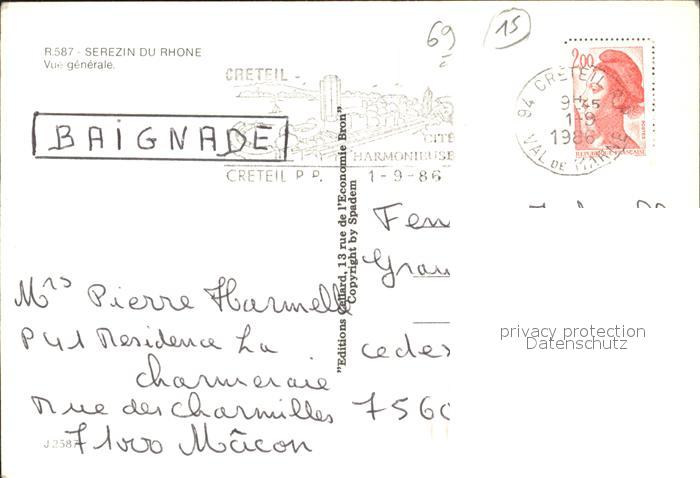 69
15
R.587 - SEREZIN DU RHONE
Vue générale.
CRETEIL -
BAiGNADE
CITÉ
HARMONIEUSE
CRETEIL P P. 1-9-86
2,00
94 CRETEIL
9H45
1-9
1986
VAL DE MARNE
POSTES
REPUBLIQUE FRANÇAISE
"Editions Cellard, 13 rue de l'Economie Bron"
Copyright by Spadem
Fen
Gran
Mrs Pierre Harmelle
P41 Residence La
charmeraie
Rue des charmilles
71000 Mâcon
cedex
7560
J 2587
privacy protection
Datenschutz